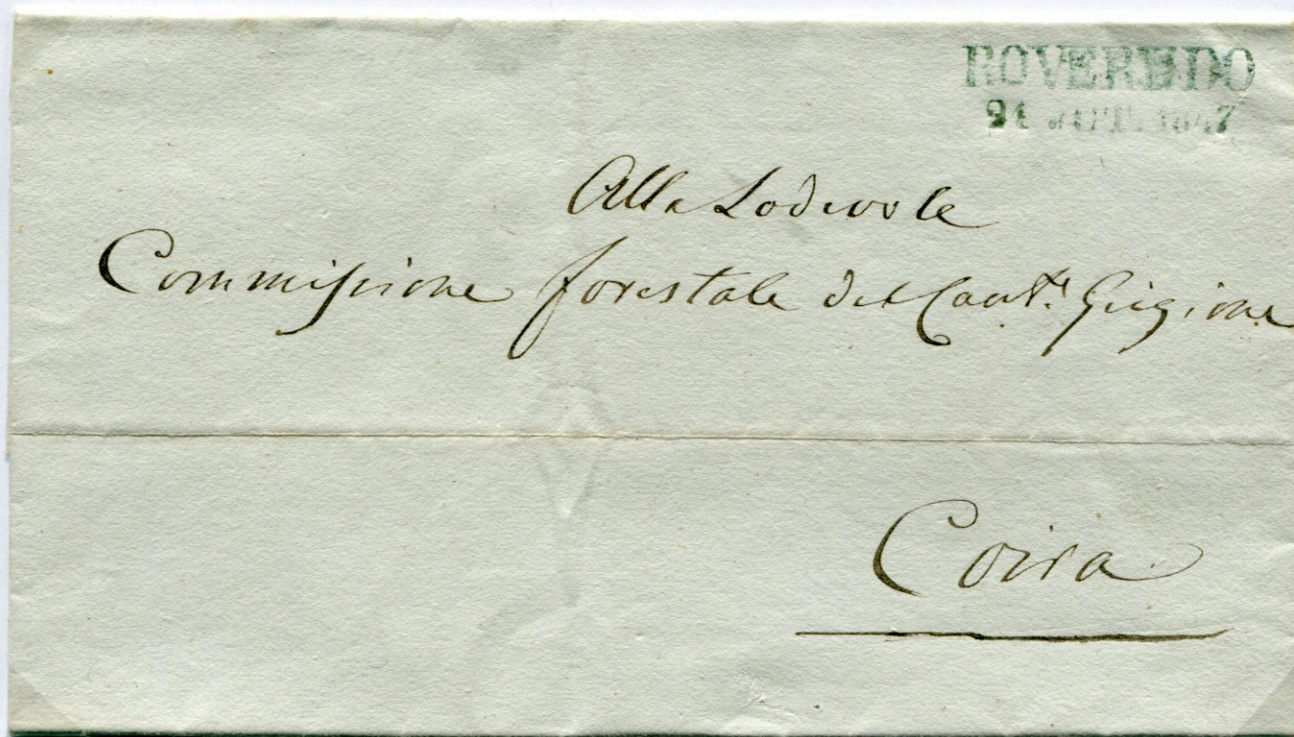 ROVEREDO
21 OTT. 1847
Alla Lodevole
Commissione forestale del Cant.e Grigione
Coira